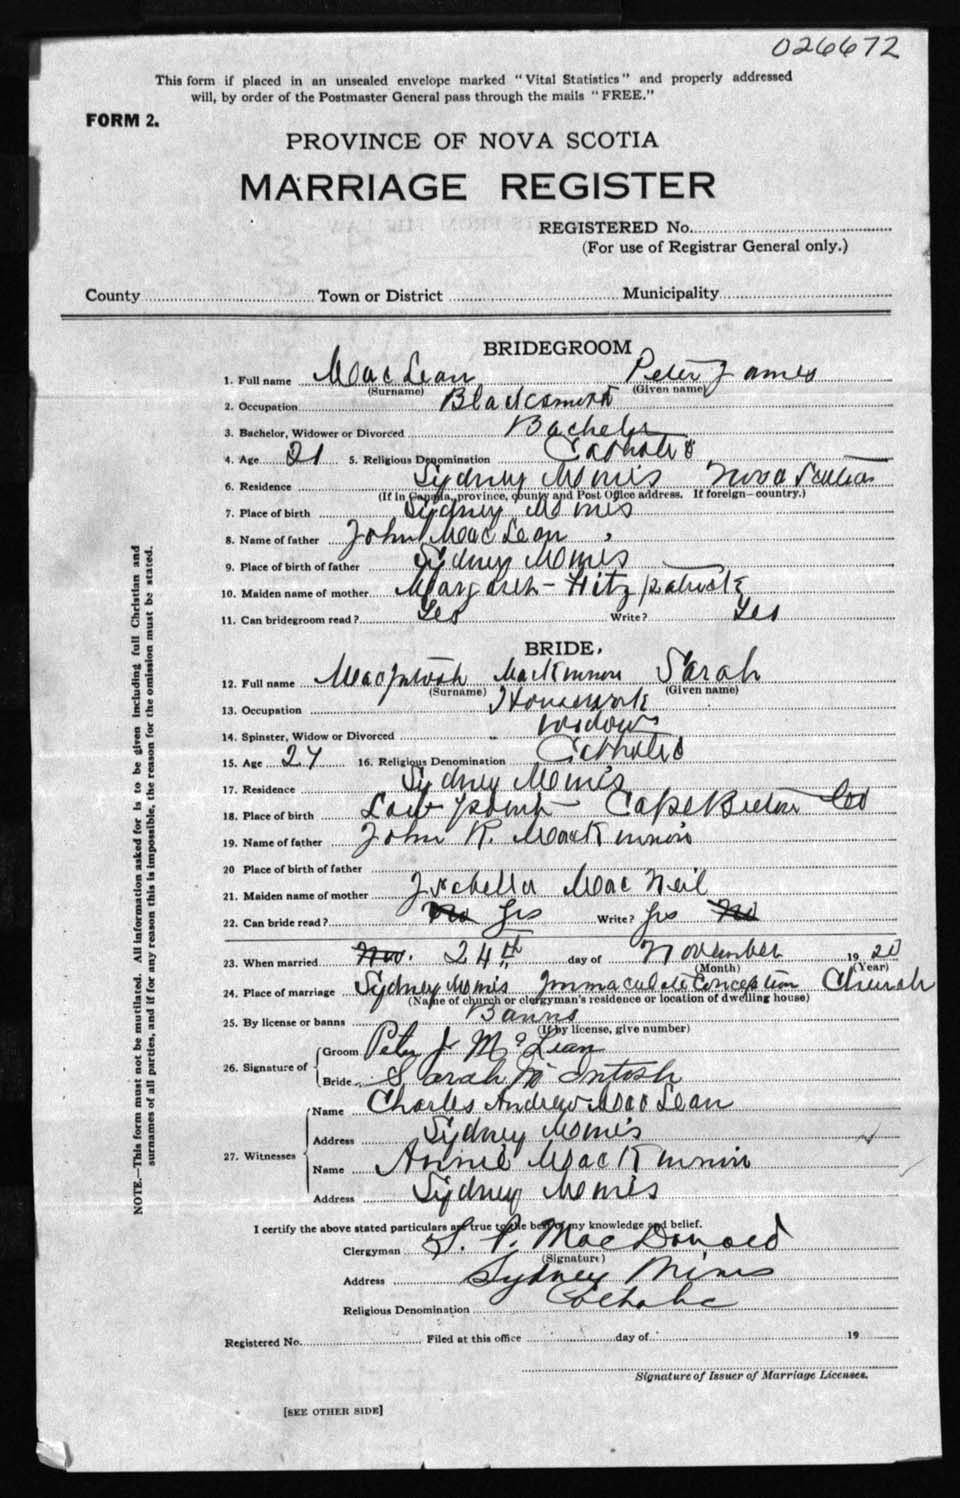 026672
This form if placed in an unsealed envelope marked "Vital Statistics" and properly addressed
will, by order of the Postmaster General pass through the mails "FREE."
FORM 2.
PROVINCE OF NOVA SCOTIA
MARRIAGE REGISTER
REGISTERED No.
(For use of Registrar General only.)
County Town or District Municipality
BRIDEGROOM
1. Full name MacLean Peter James
(Surname) (Given name)
2. Occupation Blacksmith
3. Bachelor, Widower or Divorced Bachelor
4. Age 21 5. Religious Denomination Catholic
6. Residence Sydney Mines Nova Scotia
(If in Canada, province, county and Post Office address. If foreign—country.)
7. Place of birth Sydney Mines
8. Name of father John MacLean
9. Place of birth of father Sydney Mines
10. Maiden name of mother Margaret Fitzpatrick
11. Can bridegroom read? Yes Write? Yes
BRIDE.
12. Full name MacIntosh MacKinnon Sarah
(Surname) (Given name)
13. Occupation Housework
14. Spinster, Widow or Divorced Widow
15. Age 27 16. Religious Denomination Catholic
17. Residence Sydney Mines
18. Place of birth Low point Cape Breton Co
19. Name of father John R. MacKinnon
20 Place of birth of father
21. Maiden name of mother Isabella MacNeil
22. Can bride read? No Yes Write? Yes No
23. When married Nov. 24th day of November 1920
(Month) (Year)
24. Place of marriage Sydney Mines Immaculate Conception Church
(Name of church or clergyman's residence or location of dwelling house)
25. By license or banns Banns
(If by license, give number)
26. Signature of
Groom Peter J McLean
Bride Sarah McIntosh
27. Witnesses
Name Charles Andrew MacLean
Address Sydney Mines
Name Annie MacKinnon
Address Sydney Mines
I certify the above stated particulars are true to the best of my knowledge and belief.
Clergyman MacDonald
(Signature)
Address Sydney Mines
Religious Denomination Catholic
Registered No. Filed at this office day of 19
Signature of Issuer of Marriage Licenses.
[SEE OTHER SIDE]
NOTE.—This form must not be mutilated. All information asked for is to be given including full Christian and
surnames of all parties, and if for any reason this is impossible, the reason for the omission must be stated.